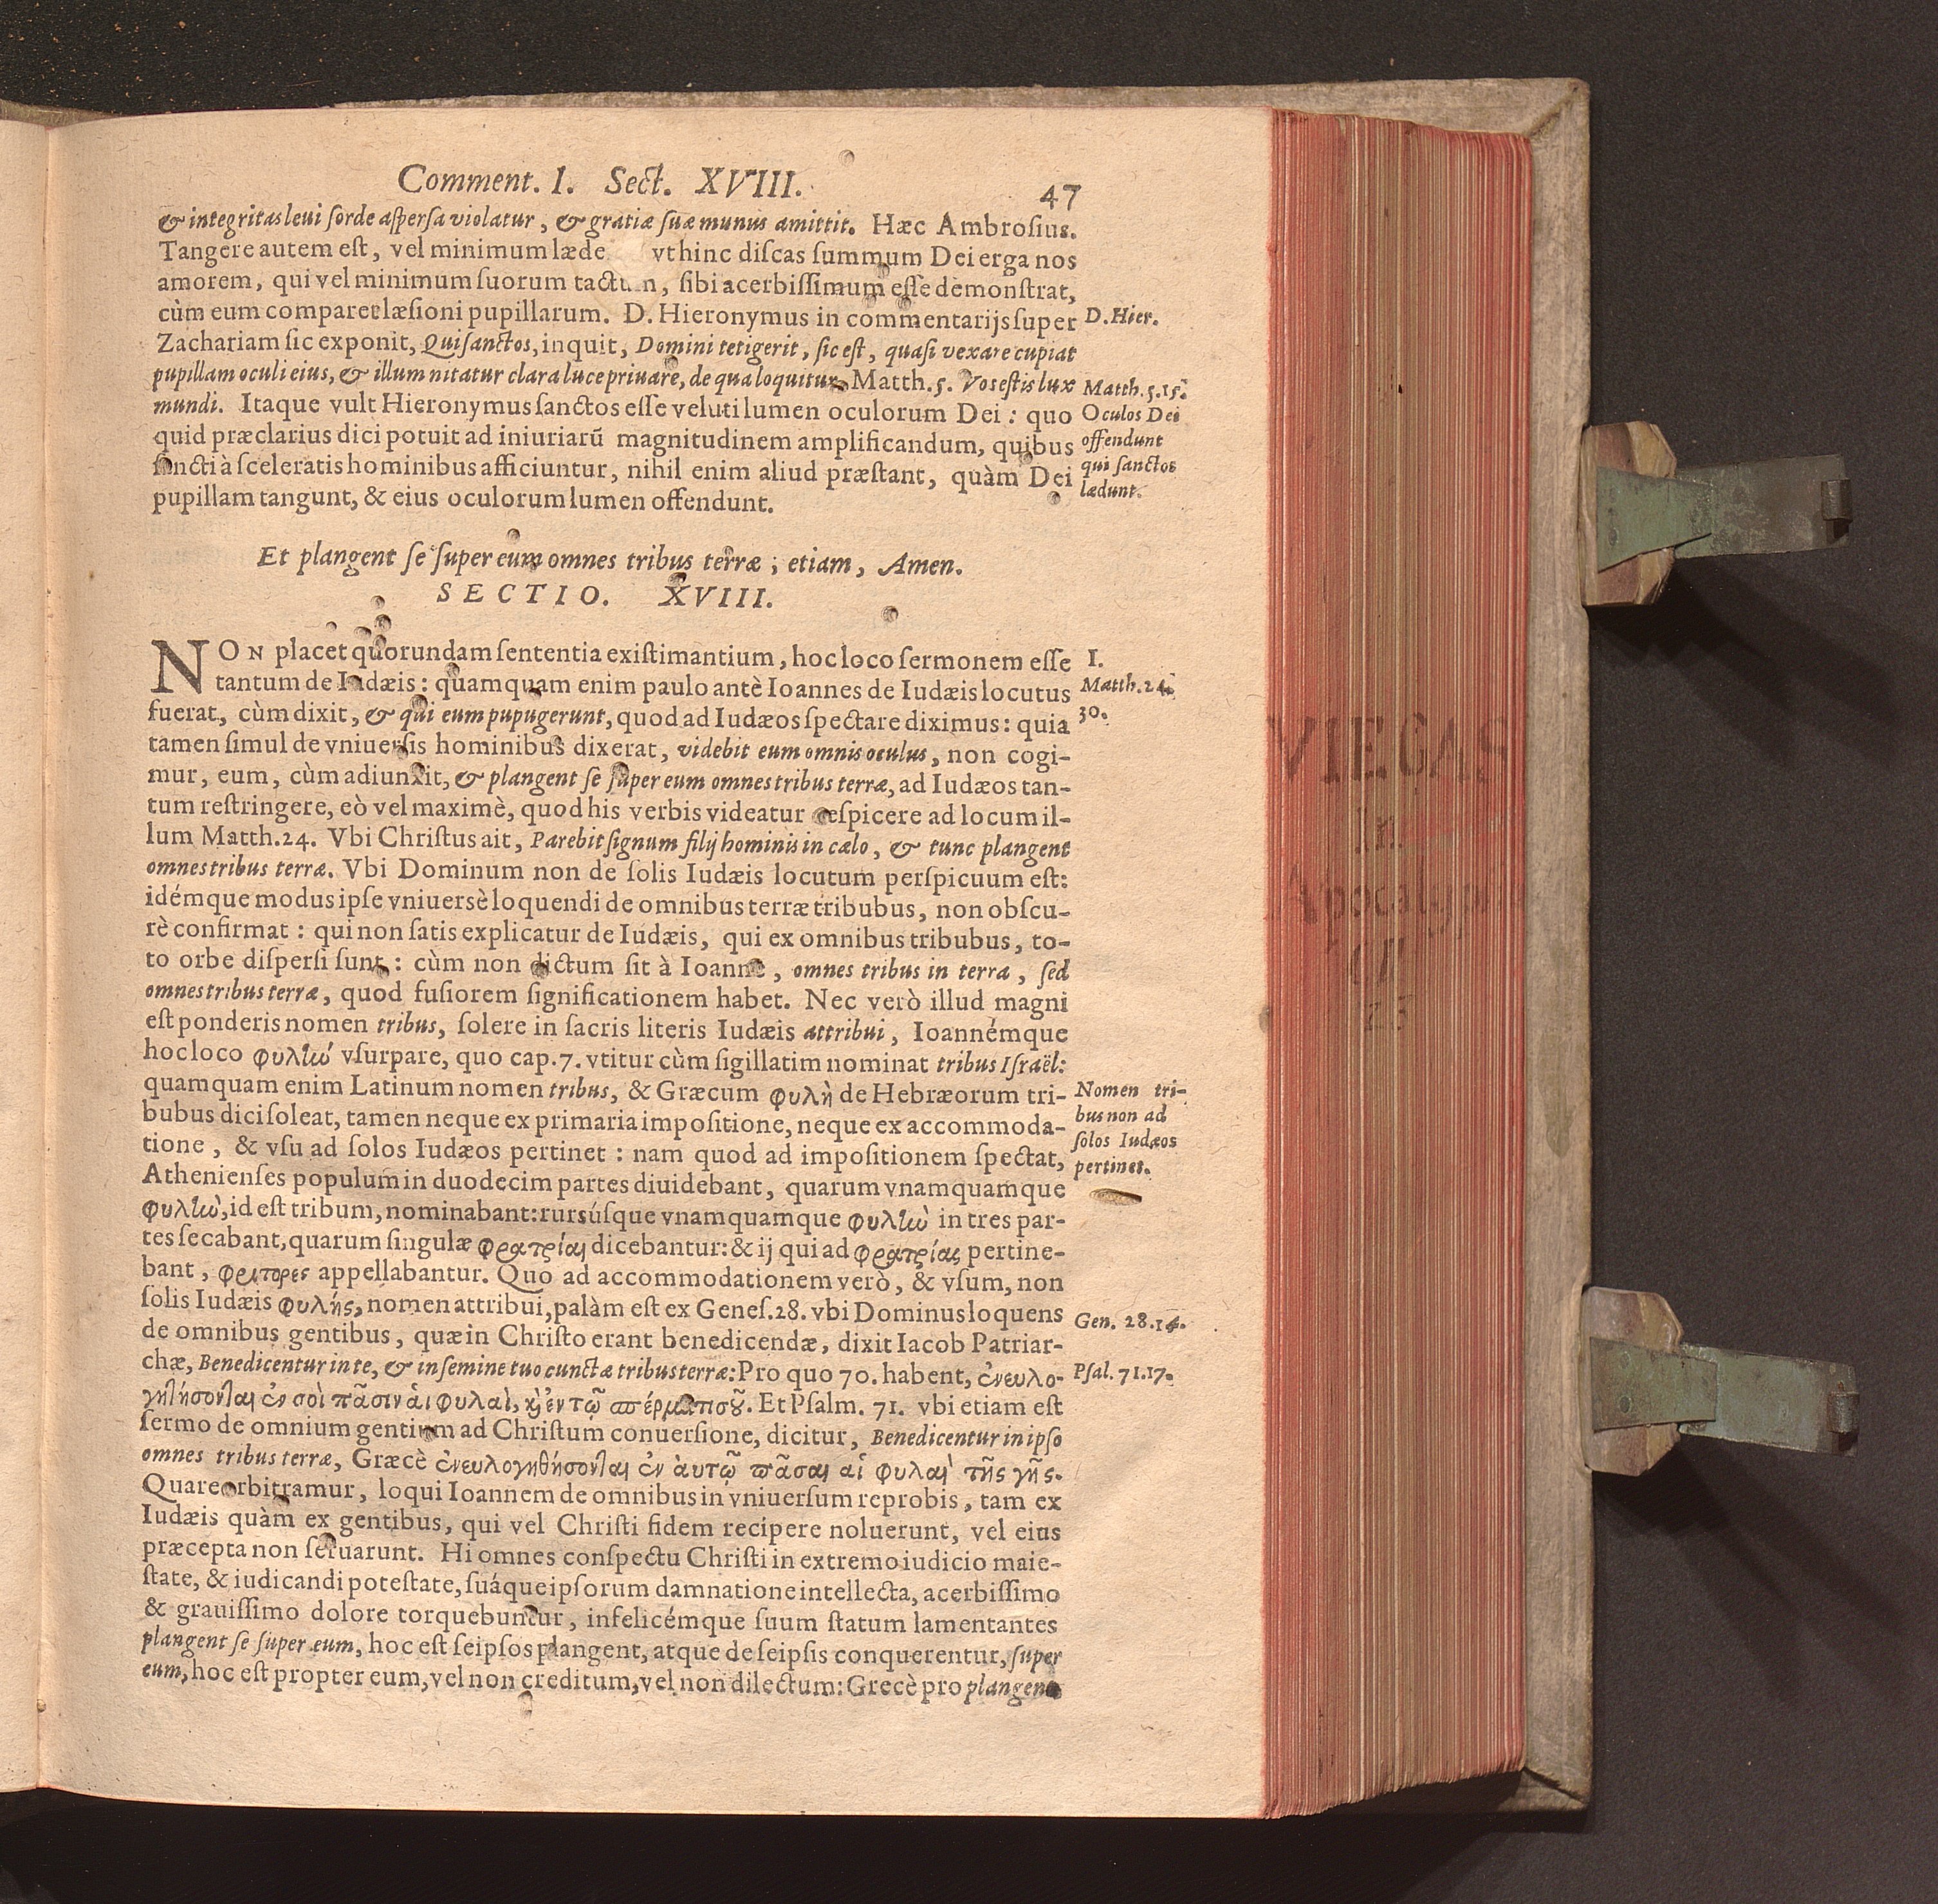 Comment. I. Sect. XVIII. 47
& integritas leui ſorde aſperſa violatur, & gratiæ ſuæ munus amittit. Hæc Ambroſius.
Tangere autem eſt, vel minimum læde vt hinc diſcas ſummum Dei erga nos
amorem, qui vel minimum ſuorum tactum, ſibi acerbiſſimum eſſe demonſtrat,
cùm eum comparet læſioni pupillarum. D. Hieronymus in commentarijs ſuper
D. Hier.
Zachariam ſic exponit, Qui ſanctos, inquit, Domini tetigerit, ſic eſt, quaſi vexare cupiat
pupillam oculi eius, & illum nitatur clara luce priuare, de qua loquitur Matth. 5. Vos eſtis lux
Matth. 5.15.
mundi. Itaque vult Hieronymus ſanctos eſſe veluti lumen oculorum Dei : quo
quid præclarius dici potuit ad iniuriarũ magnitudinem amplificandum, quibus
ſancti à ſceleratis hominibus afficiuntur, nihil enim aliud præſtant, quàm Dei
pupillam tangunt, & eius oculorum lumen offendunt.
Oculos Dei
offendunt
qui ſanctos
lædunt.
Et plangent ſe ſuper eum omnes tribus terræ ; etiam, Amen.
SECTIO. XVIII.
NON placet quorundam ſententia exiſtimantium, hoc loco ſermonem eſſe
I.
tantum de Iudæis : quamquam enim paulo antè Ioannes de Iudæis locutus
Matth. 24.
30.
fuerat, cùm dixit, & qui eum pupugerunt, quod ad Iudæos ſpectare diximus : quia
tamen ſimul de vniuerſis hominibus dixerat, videbit eum omnis oculus, non cogi-
mur, eum, cùm adiunxit, & plangent ſe ſuper eum omnes tribus terræ, ad Iudæos tan-
tum reſtringere, eò vel maximè, quod his verbis videatur reſpicere ad locum il-
lum Matth. 24. Vbi Chriſtus ait, Parebit ſignum filij hominis in cælo, & tunc plangent
omnes tribus terræ. Vbi Dominum non de ſolis Iudæis locutum perſpicuum eſt:
idémque modus ipſe vniuersè loquendi de omnibus terræ tribubus, non obſcu-
rè confirmat : qui non ſatis explicatur de Iudæis, qui ex omnibus tribubus, to-
to orbe diſperſi ſunt : cùm non dictum ſit à Ioanne, omnes tribus in terra, ſed
omnes tribus terræ, quod fuſiorem ſignificationem habet. Nec verò illud magni
eſt ponderis nomen tribus, ſolere in ſacris literis Iudæis attribui, Ioannémque
hoc loco φυλὴν vſurpare, quo cap. 7. vtitur cùm ſigillatim nominat tribus Iſraël:
quamquam enim Latinum nomen tribus, & Græcum φυλὴ de Hebræorum tri-
bubus dici ſoleat, tamen neque ex primaria impoſitione, neque ex accommoda-
tione, & vſu ad ſolos Iudæos pertinet : nam quod ad impoſitionem ſpectat,
Nomen tri-
bus non ad
ſolos Iudæos
pertinet.
Athenienſes populum in duodecim partes diuidebant, quarum vnamquamque
φυλὴν, id eſt tribum, nominabant: rursúſque vnamquamque φυλὴν in tres par-
tes ſecabant, quarum ſingulæ φρατρίαι dicebantur: & ij qui ad φρατρίας pertine-
bant, φράτορες appellabantur. Quo ad accommodationem verò, & vſum, non
ſolis Iudæis φυλῆς, nomen attribui, palàm eſt ex Geneſ. 28. vbi Dominus loquens
Gen. 28.14.
de omnibus gentibus, quæ in Chriſto erant benedicendæ, dixit Iacob Patriar-
chæ, Benedicentur in te, & in ſemine tuo cunctæ tribus terræ: Pro quo 70. habent, ἐνευλο-
Pſal. 71.17.
γηθήσονται ἐν σοὶ πᾶσιν ἁι φυλαὶ, καὶ ἐν τῷ σπέρματι σοῦ. Et Pſalm. 71. vbi etiam eſt
ſermo de omnium gentium ad Chriſtum conuerſione, dicitur, Benedicentur in ipſo
omnes tribus terræ, Græcè ἐνευλογηθήσονται ἐν ἀυτῷ πᾶσαι αἱ φυλαὶ τῆς γῆς.
Quare orbitramur, loqui Ioannem de omnibus in vniuerſum reprobis, tam ex
Iudæis quàm ex gentibus, qui vel Chriſti fidem recipere noluerunt, vel eius
præcepta non ſeruarunt. Hi omnes conſpectu Chriſti in extremo iudicio maie-
ſtate, & iudicandi poteſtate, ſuáque ipſorum damnatione intellecta, acerbiſſimo
& grauiſſimo dolore torquebuntur, infelicémque ſuum ſtatum lamentantes
plangent ſe ſuper eum, hoc eſt ſeipſos plangent, atque de ſeipſis conquerentur, ſuper
eum, hoc eſt propter eum, vel non creditum, vel non dilectum: Grecè pro plangent
VIEGAS
In
Apocalypſ